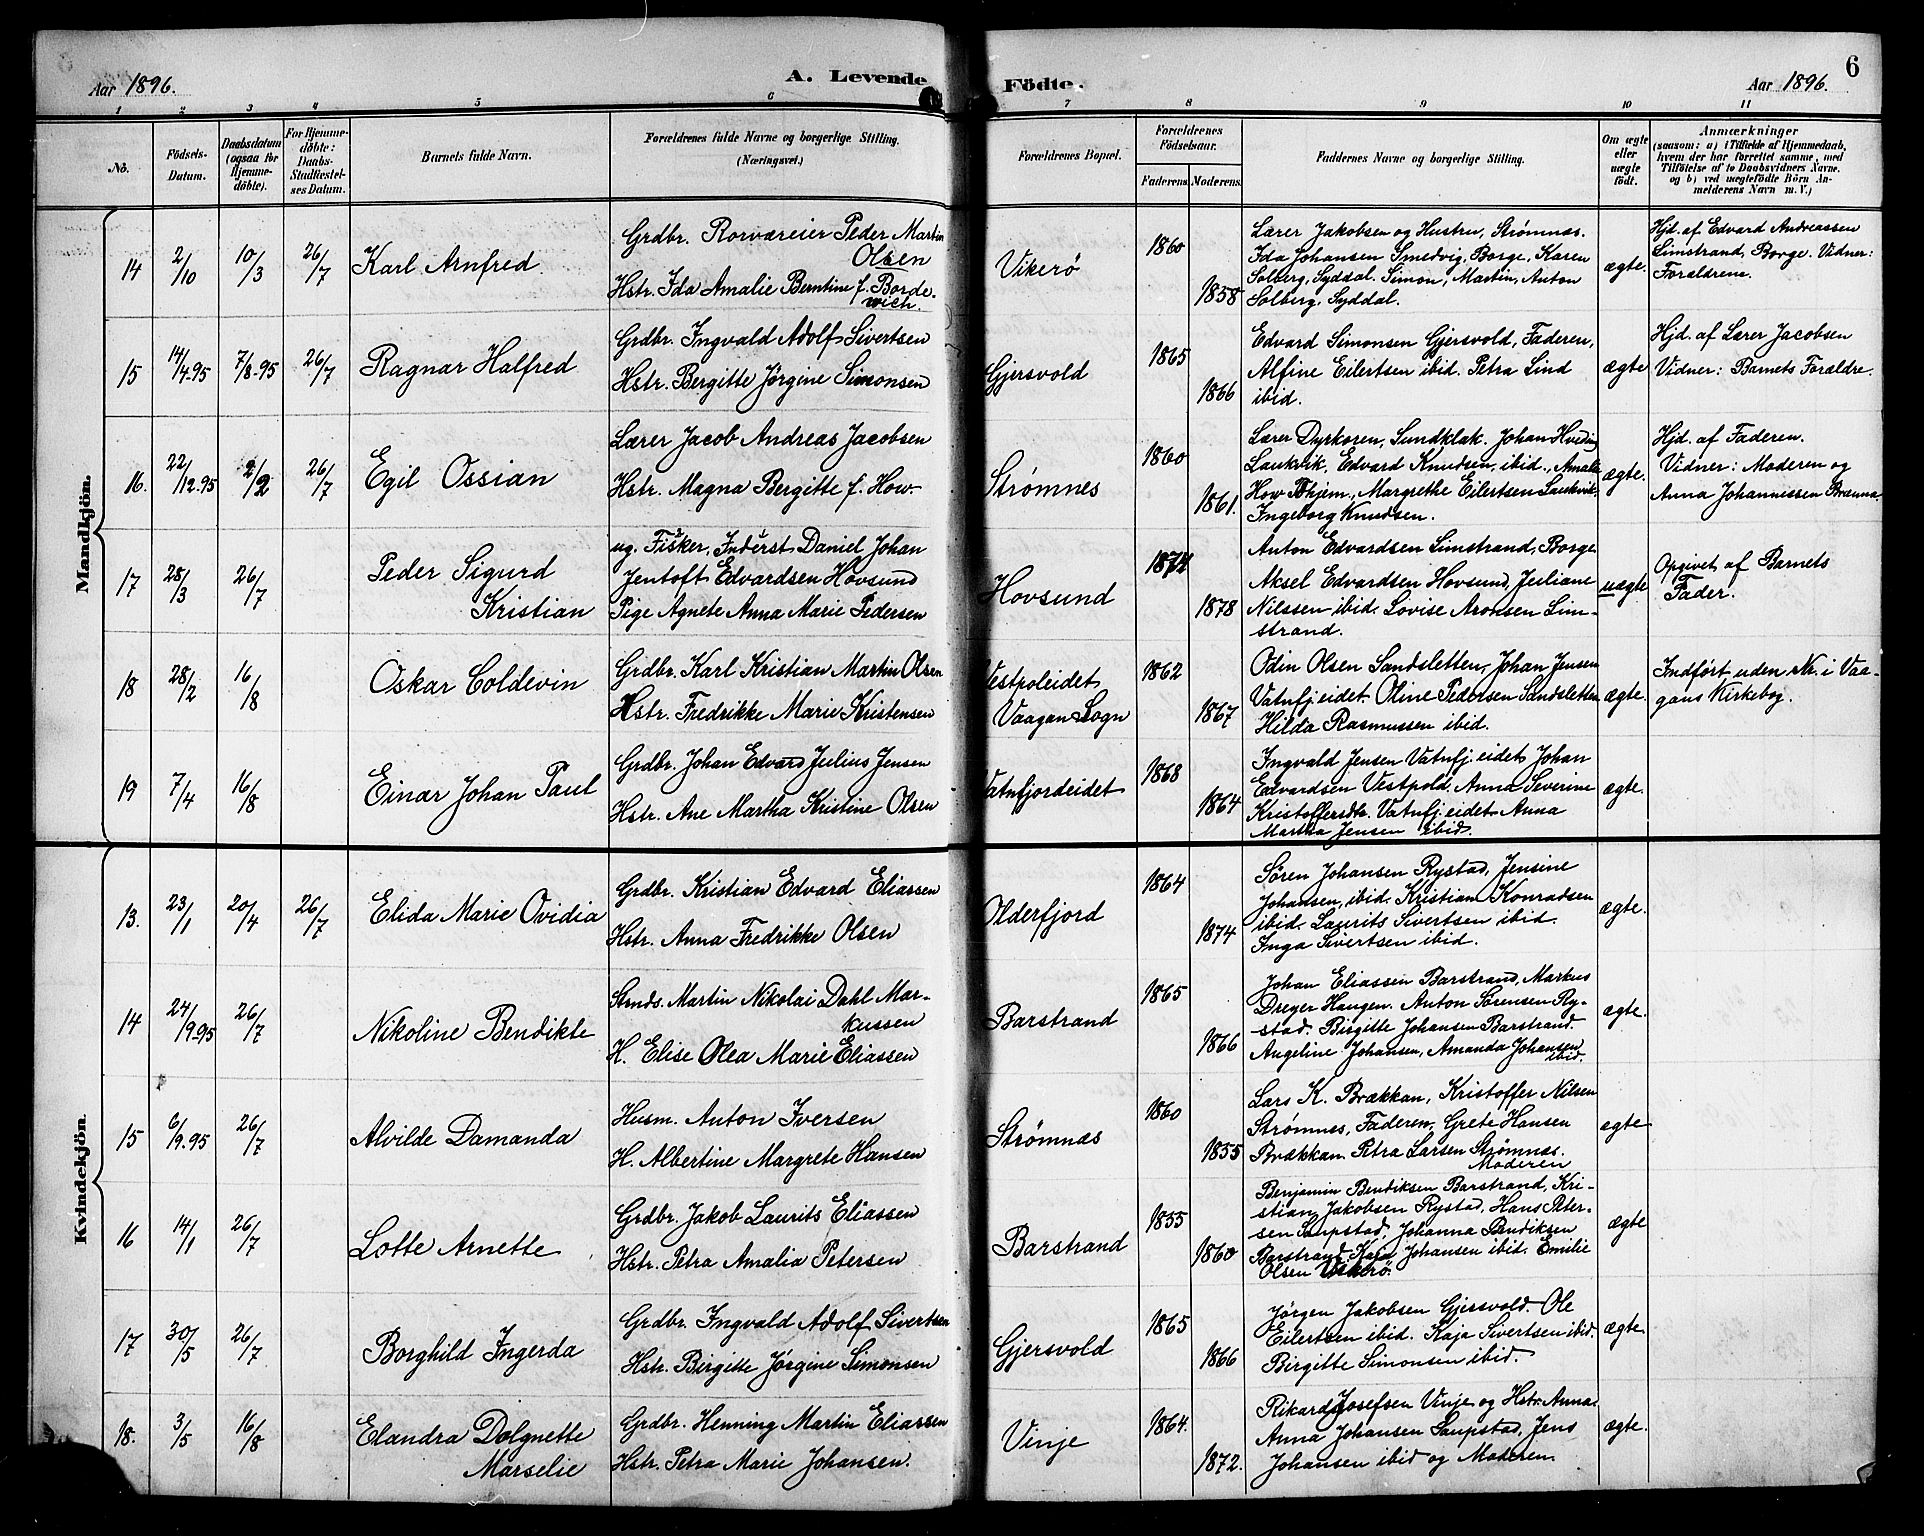 6
Aar 1896.
A. Levende
Födte.
Aar 1896.
1 2 3 4 5 6 7 8 9 10 11
No.
Födsels-
Datum.
Daabsdatum
(ogsaa for
Hjemme-
döbte).
For Hjemme-
döbte:
Daabs-
Stadfæstel-
ses Datum.
Barnets fulde Navn.
Forældrenes fulde Navne og borgerlige Stilling.
(Næringsvei.)
Forældrenes Bopæl.
Forældrenes
Födselsaar.
Faderens. Moderens.
Faddernes Navne og borgerlige Stilling.
Om ægte
eller
uægte
födt.
Anmærkninger
(saasom: a) i Tilfælde af Hjemmedaab,
hvem der har forrettet samme, med
Tilföielse af to Daabsvidners Navne.
og b) ved uægtefödte Börn An-
melderens Navn m. V.)
Mandkjön.
14
2/10
10/3
26/7
Karl Arnfred
Grdbr. Rorværeier Peder Martin
Olsen
Hstr. Ida Amalie Berntine f. Borde-
wich.
Vikerö
1860
1858
Lærer Jakobsen og Hustru, Strømnæs.
Ida Johansen Smedvig, Borge, Karen
Solberg, Syddal. Simon, Martin, Anton
Solberg, Syddal.
ægte.
Hjd. af Edvard Andreassen
Limstrand, Borge. Vidner:
Forældrene.
15
14/4-95
7/8-95
26/7
Ragnar Halfred
Grdbr. Ingvald Adolf Sivertsen
Hstr. Bergitte Jørgine Simonsen
Gjersvold
1865
1866
Edvard Simonsen Gjersvold, Faderen,
Alfine Eilertsen ibid. Petra Lind
ibid.
ægte
Hjd. af Lærer Jacobsen
Vidner: Barnets Forældre.
16.
22/12-95
2/2
26/7
Egil Ossian
Lærer Jacob Andreas Jacobsen
Hstr. Magna Bergitte f. How-
Strømnes
1860
1861.
Lærer Dyrkoren, Sundklak. Johan Hveding
Laukvik, Edvard Knudsen, ibid., Amalie
How Thjem, Margrethe Eilertsen Laukvik.
Ingeborg Knudsen.
ægte.
Hjd. af Faderen.
Vidner: Moderen og
Anna Johannissen Brenna.
17
28/3
26/7
Peder Sigurd
Kristian
ug. Fisker, Inderst Daniel Johan
Jentoft Edvardsen Hovsund
Pige Agnete Anna Marie Pedersen
Hovsund
1874
1878
Anton Edvardsen Limstrand, Borge.
Aksel Edvardsen Hovsund, Juliane
Nilssen ibid. Lovise Aronsen Lim-
strand.
uægte
Opgivet af Barnets
Fader.
18
28/2
16/8
Oskar Coldevin
Grdbr. Karl Kristian Martin Olsen
Hstr. Fredrikke Marie Kristensen
Vestpoleidet
Vaagan Sogn
1862
1867
Odin Olsen Sandsletten, Johan Jensen
Vatnfj.eidet. Oline Pedersen Sandsletten
Hilda Rasmussen ibid.
ægte.
Indført uden Nr. i Vaa-
gans Kirkebog.
19
7/4
16/8
Einar Johan Paul
Grdbr. Johan Edvard Julius Jensen
Hstr. Ane Martha Kristine Olsen
Vatnfjordeidet
1868
1864
Ingvald Jensen Vatnfj.eidet Johan
Edvardsen Vestpold. Anna Severine
Kristoffersdtr. Vatnfj.eidet Anna
Martha Jensen ibid.
ægte.
Kvindekjön.
13.
23/1
20/4
26/7
Elida Marie Ovidia
Grdbr. Kristian Edvard Eliassen
Hstr. Anna Fredrikke Olsen
Olderfjord
1864
1874
Søren Johansen Rystad, Jensine
Johansen, ibid. Kristian Konradsen
ibid. Laurits Sivertsen ibid.
Inga Sivertsen ibid.
ægte.
14
24/9-95
26/7
Nikoline Bendikte
Strnds. Martin Nikolai Dahl Mar-
kussen
H. Elise Olea Marie Eliassen
Barstrand
1865
1866
Johan Eliassen Barstrand, Markus
Dreyer Haugen. Anton Sørensen Ry-
stad. Birgitte Johansen Barstrand.
Angeline Johansen, Amanda Johansen
ibid.
ægte.
15
6/9.95
26/7
Alvilde Damanda
Husm. Anton Iversen
H. Albertine Margrete Hansen
Strømnæs
1860
1855
Lars K. Brækkan, Kristoffer Nilsen
Strømnes, Faderen, Grete Hansen
Brækkan. Petra Larsen Strømnæs.
Moderen
ægte
16
14/1
26/7
Lotte Arnette
Grdbr. Jakob Laurits Eliassen
Hstr. Petra Amalia Petersen
Barstrand
1855
1860
Benjamin Bendiksen Barstrand, Kri-
stian Jakobsen Rystad, Hans Peter-
sen Saupstad, Johanna Bendiksen
Barstrand Kaja Johansen ibid. Emilie
Olsen Vikerö.
ægte
17
30/5
26/7
Borghild Ingerda
Grdbr. Ingvald Adolf Sivertsen
Hstr. Birgitte Jørgine Simonsen
Gjersvold
1865
1866
Jørgen Jakobsen Gjersvold. Ole
Eilertsen ibid. Kaja Sivertsen ibid.
Birgitte Simonsen ibid.
ægte
18.
3/5
16/8
Elandra Dolgnette
Marselie
Grdbr. Henning Martin Eliassen
Hstr. Petra Marie Johansen.
Vinje
1864.
1872.
Rikard Josefsen Vinje og Hstr. Anna.
Anna Johansen Saupstad, Jens
Johansen ibid og Moderen
ægte.